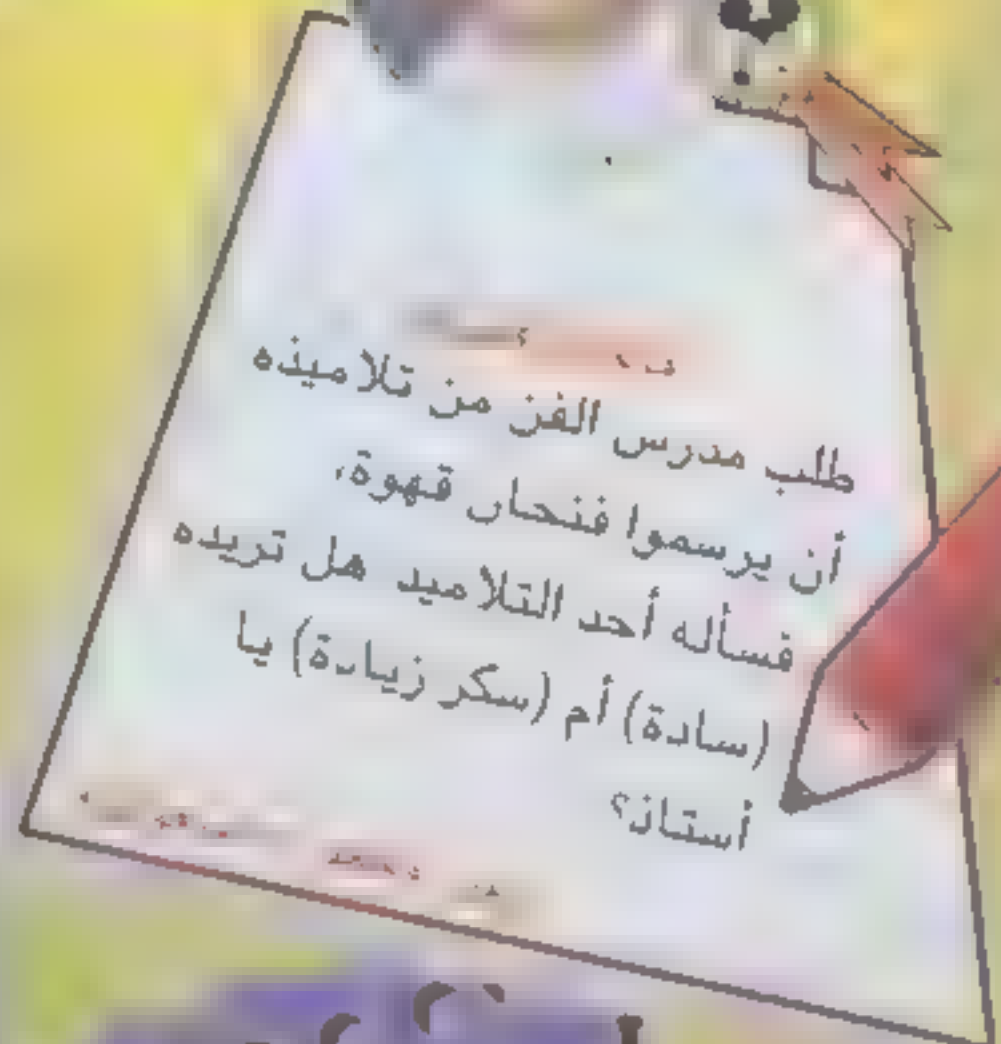 طلب مدرس الفن من تلاميذه
أن يرسموا فنجان قهوة،
فسأله أحد التلاميذ هل تريده
(سادة) أم (سكر زيادة) يا
أستاذ؟